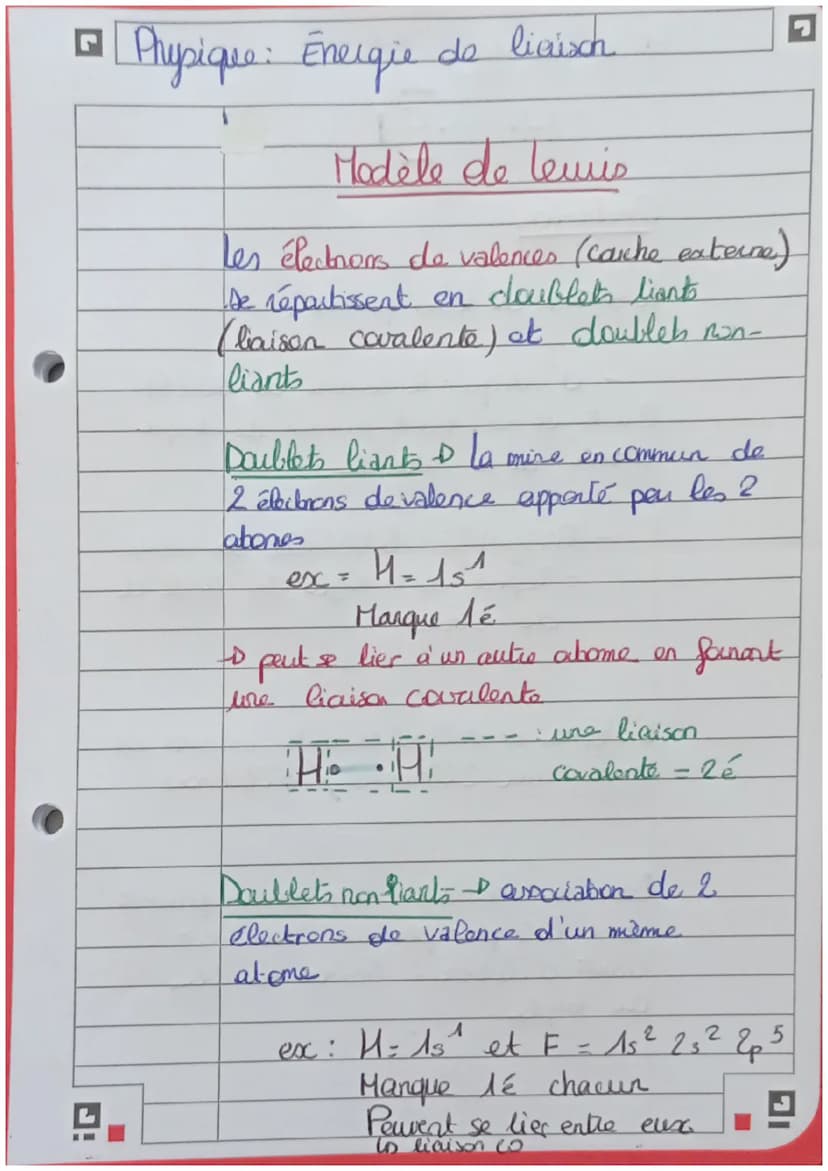 Physique: Énergie de liaison
Modèle de Lewis
Les électrons de valences (couche externe)
se répartissent en doublets liants
(liaison covalente) et doublets non-
liants
Doublets liants → la mise en commun de
2 électrons de valence apporté par les 2
atomes
ex = H = 1s¹
Manque 1é
→ peut se lier à un autre atome en formant
une liaison covalente
H• •H --- : une liaison
covalente = 2é
Doublets non liants → association de 2
électrons de valence d'un même
atome
ex : H = 1s¹ et F = 1s² 2s² 2p⁵
Manque 1é chacun
Peuvent se lier entre eux
↳ liaison co